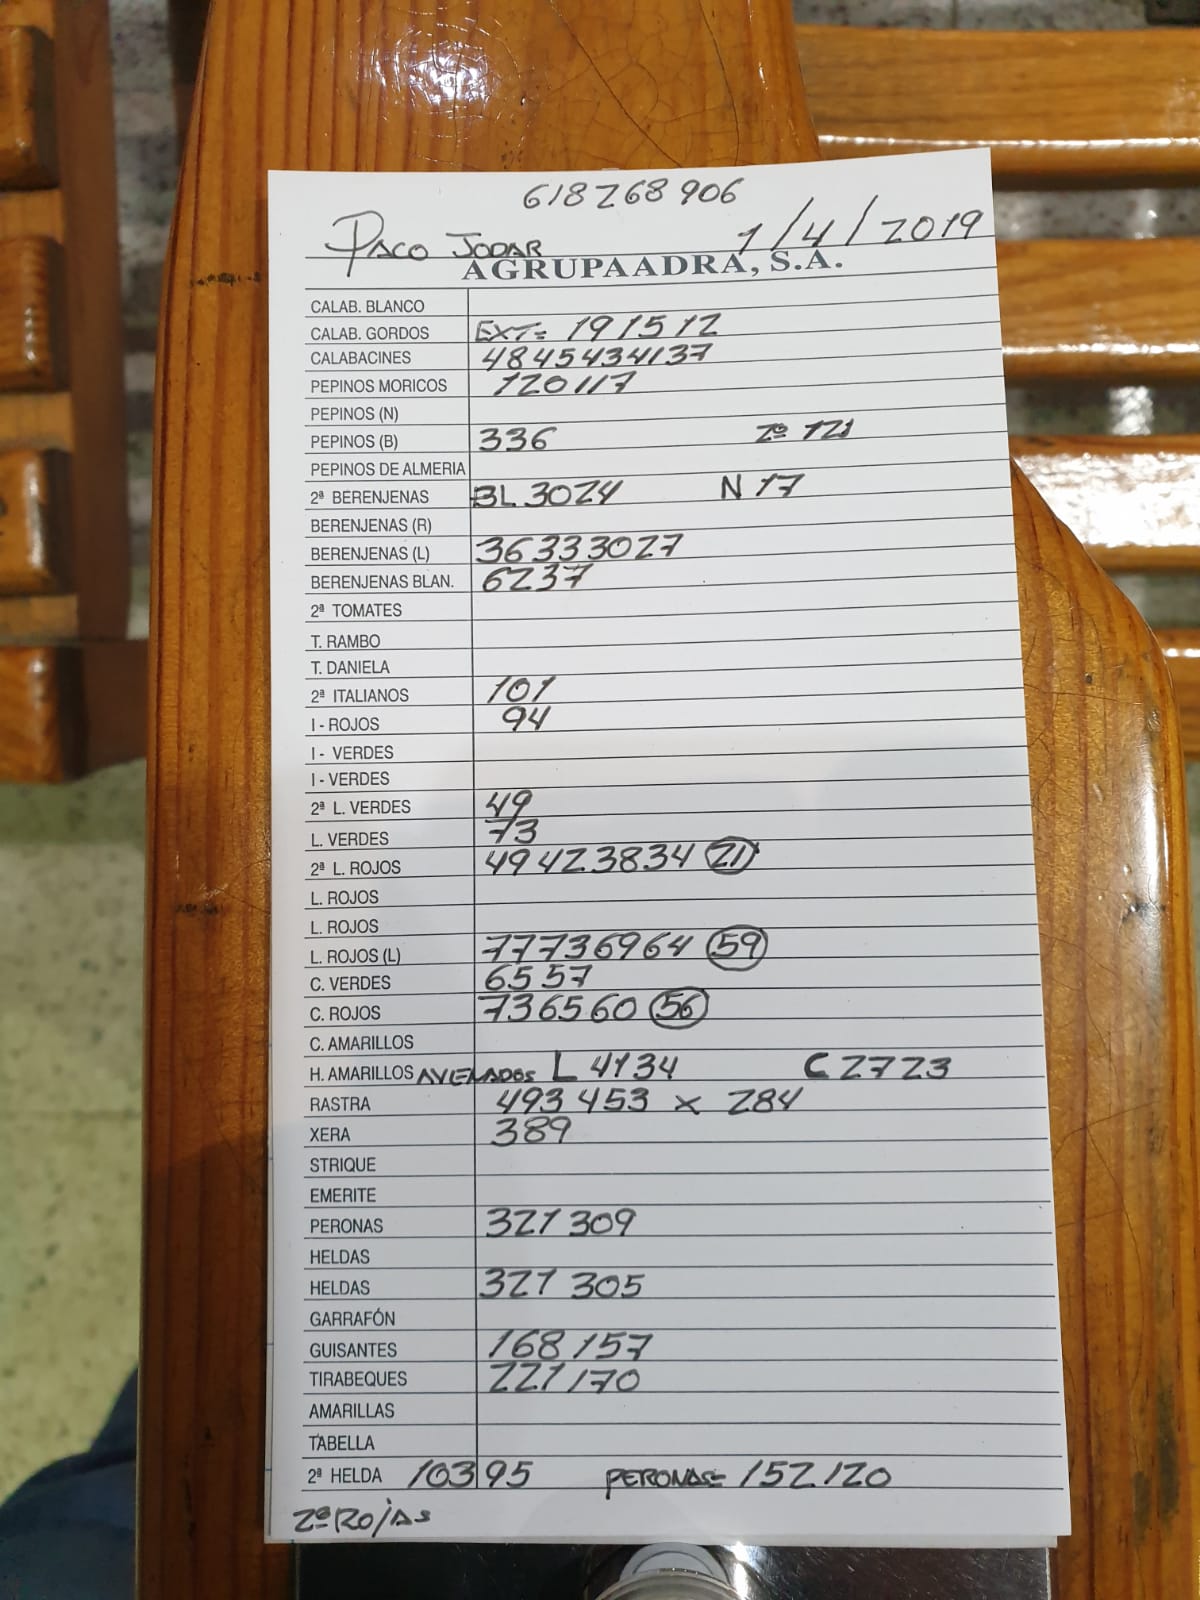 618268906
PACO JODAR 1/4/2019
AGRUPAADRA, S.A.
CALAB. BLANCO
CALAB. GORDOS EXT= 191512
CALABACINES 4845434137
PEPINOS MORICOS 120117
PEPINOS (N)
PEPINOS (B) 336 2º 121
PEPINOS DE ALMERIA
2ª BERENJENAS BL 3024 N 17
BERENJENAS (R)
BERENJENAS (L) 36333027
BERENJENAS BLAN. 6237
2ª TOMATES
T. RAMBO
T. DANIELA
2ª ITALIANOS 101
I - ROJOS 94
I - VERDES
I - VERDES
2ª L. VERDES 49
L. VERDES 73
2ª L. ROJOS 49423834 21
L. ROJOS
L. ROJOS
L. ROJOS (L) 77736964 59
C. VERDES 6557
C. ROJOS 736560 56
C. AMARILLOS
H. AMARILLOS L 4134 C 2723
RASTRA 493 453 x 284
XERA 389
STRIQUE
EMERITE
PERONAS 321 309
HELDAS
HELDAS 321 305
GARRAFÓN
GUISANTES 168 157
TIRABEQUES 221 170
AMARILLAS
TABELLA
2ª HELDA 103 95 PERONAS= 152 120
2ª ROJAS